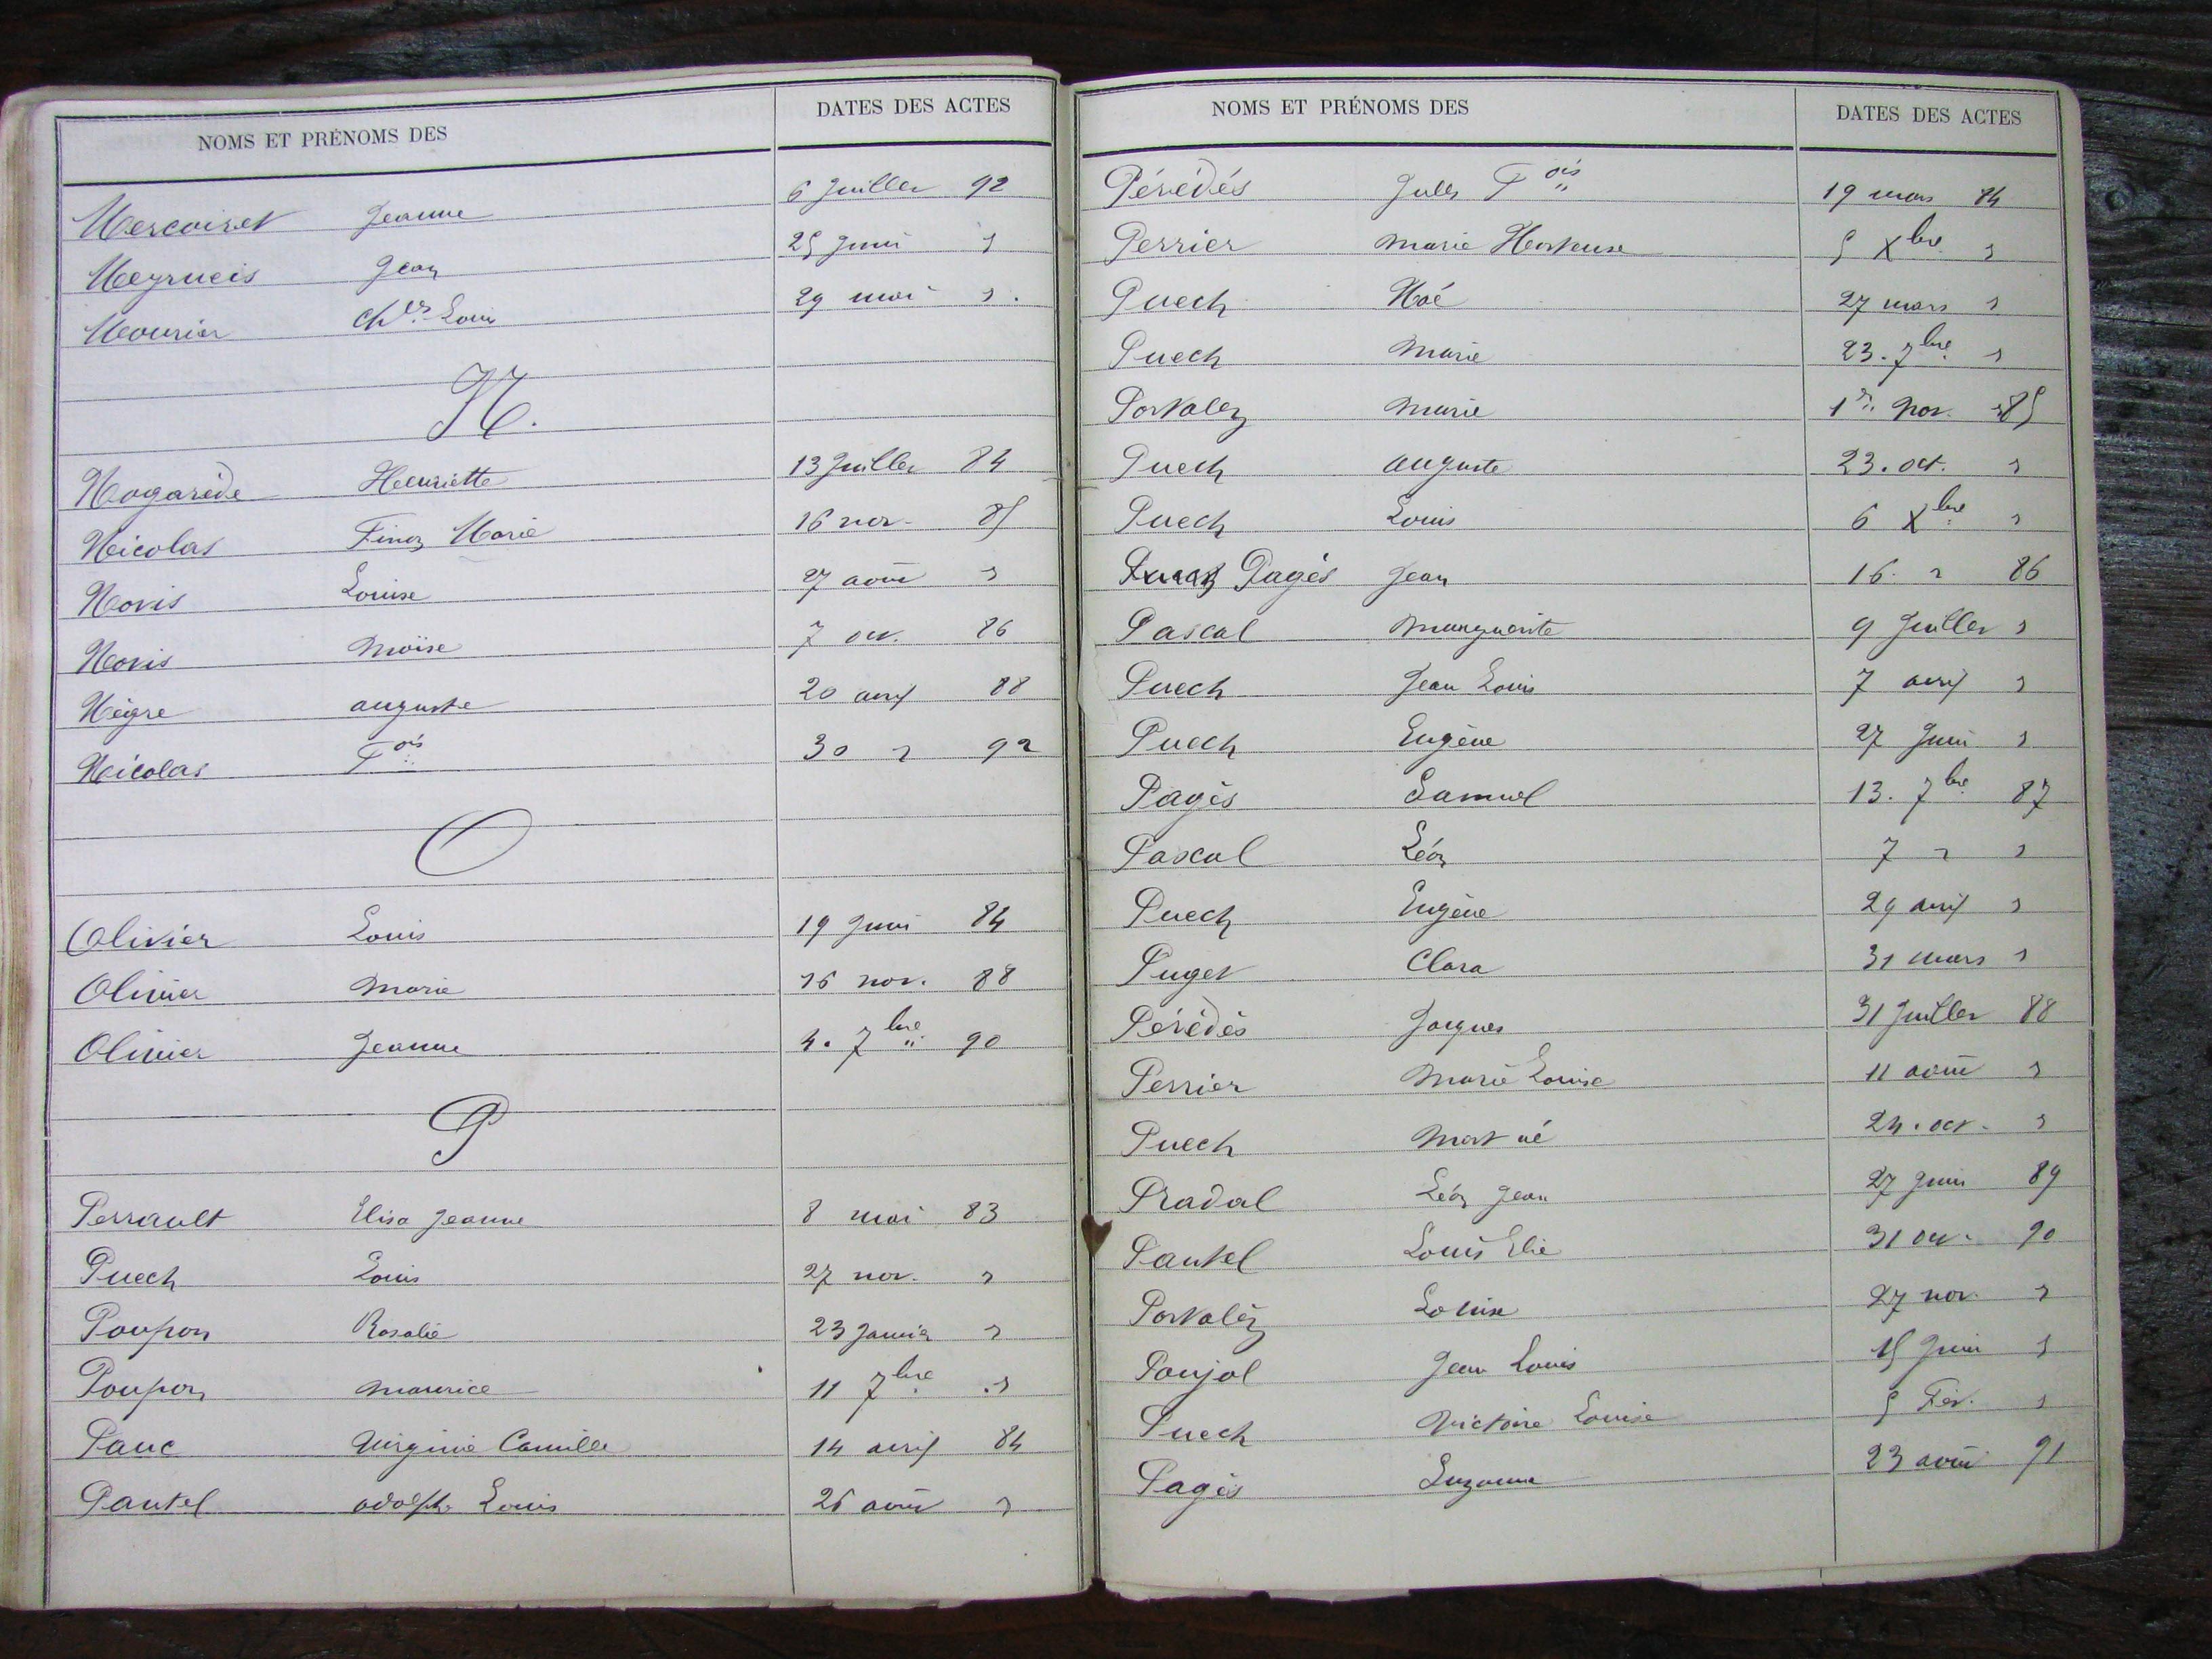 NOMS ET PRÉNOMS DES DATES DES ACTES
Mercoiret Jeanne 6 Juillet 92
Meyrueis Jean 25 Juin "
Mourier Ch les Louis 29 mai "
N.
Nogarède Henriette 13 Juillet 84
Nicolas Finon Marie 16 nov. 85
Novis Louise 27 août "
Novis Moïse 7 oct. 86
Nègre auguste 20 avril 88
Nicolas F ois 30 " 92
O
Olivier Louis 19 Juin 84
Olivier Marie 16 nov. 88
Olivier Jeanne 4. 7 bre 90
P
Perrault Elisa Jeanne 8 mai 83
Puech Louis 27 nov. "
Poupon Rosalie 23 Janvier "
Poupon maurice 11 7 bre "
Pauc Virginie Camille 14 avril 84
Pantel adolphe Louis 26 août "
NOMS ET PRÉNOMS DES DATES DES ACTES
Pérédés Jules F ois 19 mars 84
Perrier Marie Hortense 5 X bre "
Puech Noé 27 mars "
Puech Marie 23. 7 bre "
Portalez Marie 1er Nov. 85
Puech auguste 23. oct. "
Puech Louis 6 X bre "
Pagès Jean 16. " 86
Pascal Marguerite 9 Juillet "
Puech Jean Louis 7 avril "
Puech Eugène 27 Juin "
Pagès Samuel 13. 7 bre 87
Pascal Léon 7 " "
Puech Eugène 29 avril "
Puget Clara 31 mars "
Pérédès Jacques 31 Juillet 88
Perrier Marie Louise 11 août "
Puech Mort né 24. oct. "
Pradal Léon Jean 27 Juin 89
Pantel Louis Elie 31 oct. 90
Portalèz Louise 27 nov. "
Poujol Jean Louis 15 Juin "
Puech Victoire Louise 5 Fév. "
Pagès Suzanne 23 août 91